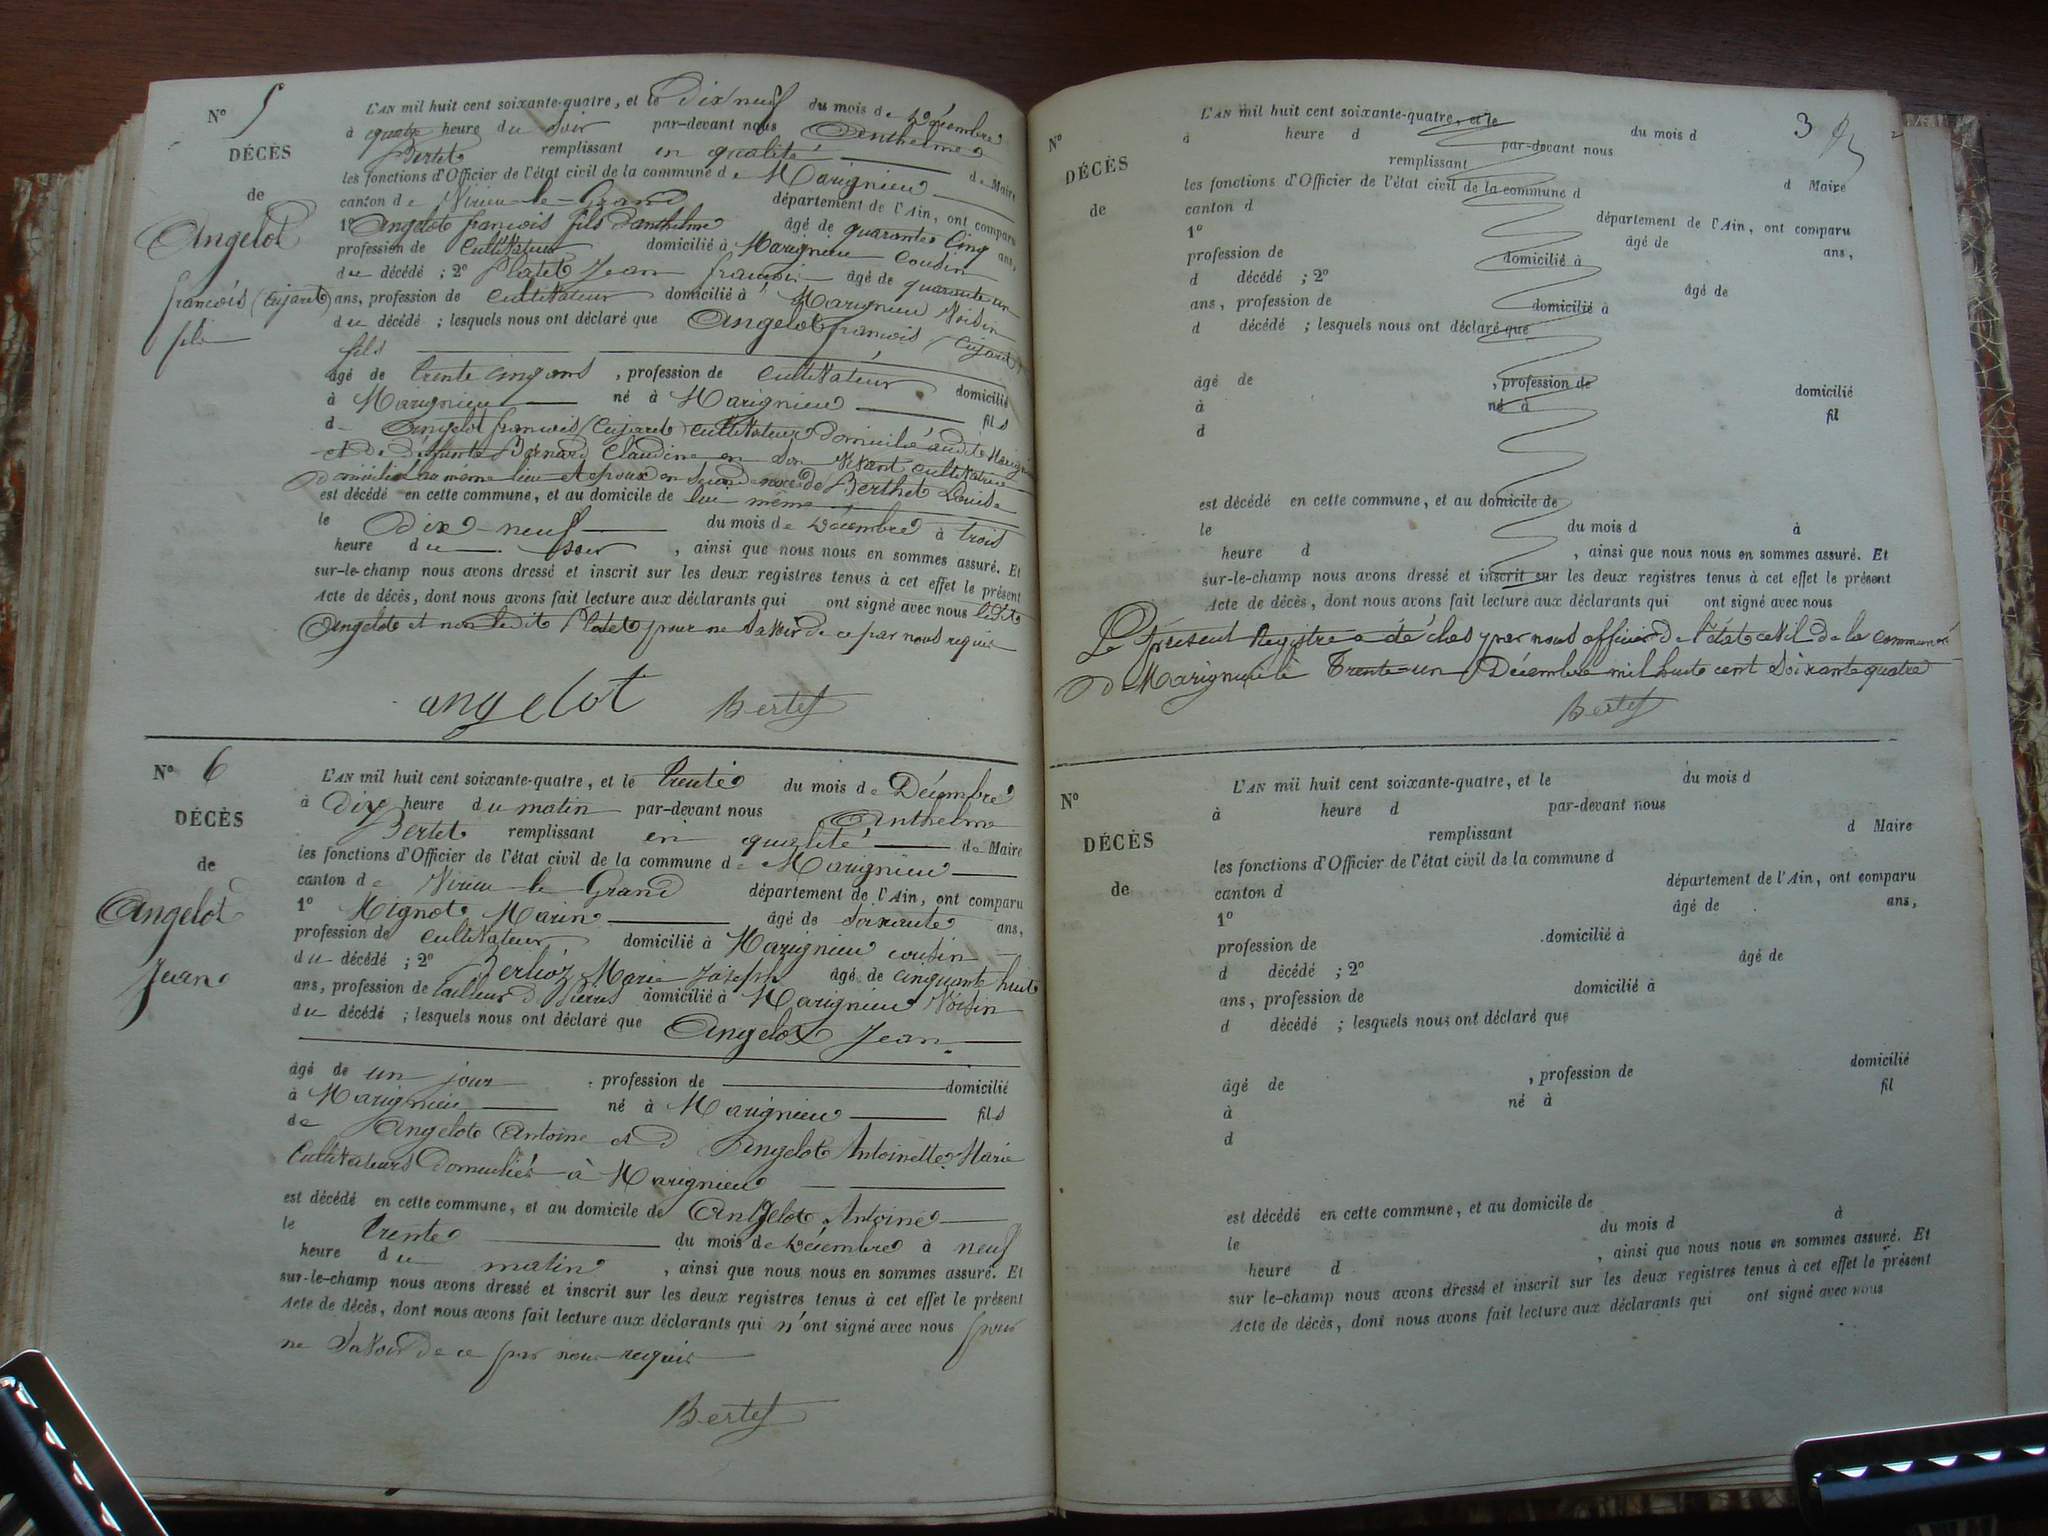 N° 5
DÉCÈS
de
Angelot
françois (Cujaret)
fils
L'AN mil huit cent soixante-quatre, et le Dix neuf du mois de Décembre
à quatre heure du soir par-devant nous Anthelme
Bertet remplissant en qualité de Maire
les fonctions d'Officier de l'état civil de la commune de Marignieu
canton de Virieu-le-Grand département de l'Ain, ont comparu
1° Angelot françois fils d'anthelme âgé de quarante Cinq ans,
profession de Cultivateur domicilié à Marignieu Cousin
du décédé ; 2° Platet Jean françois âgé de quarante un
ans, profession de Cultivateur domicilié à Marignieu Voisin
du décédé ; lesquels nous ont déclaré que Angelot françois (Cujaret)
fils
âgé de trente cinq ans , profession de Cultivateur domicilié
à Marignieu né à Marignieu fils
d Angelot françois (Cujaret) Cultivateur domicilié audit Marignieu
et de défunte Bernard Claudine en son vivant cultivatrice
domiciliée au même lieu et époux en seconde noce de Berthet Louise
est décédé en cette commune, et au domicile de lui même
le dix-neuf du mois de Décembre à trois
heure du soir , ainsi que nous nous en sommes assuré. Et
sur-le-champ nous avons dressé et inscrit sur les deux registres tenus à cet effet le présent
Acte de décès, dont nous avons fait lecture aux déclarants qui ont signé avec nous ledit
Angelot et non ledit Platet pour ne savoir de ce par nous requis
angelot Bertet
N° 6
DÉCÈS
de
Angelot
Jean
L'AN mil huit cent soixante-quatre, et le trente du mois de Décembre
à Dix heure du matin par-devant nous Anthelme
Bertet remplissant en qualité de Maire
les fonctions d'Officier de l'état civil de la commune de Marignieu
canton de Virieu-le-Grand département de l'Ain, ont comparu
1° Mignot Marin âgé de soixante ans,
profession de cultivateur domicilié à Marignieu cousin
du décédé ; 2° Berlioz Marie Joseph âgé de cinquante huit
ans, profession de tailleur de pierres domicilié à Marignieu Voisin
du décédé ; lesquels nous ont déclaré que Angelot Jean
âgé de un jour , profession de domicilié
à Marignieu né à Marignieu fils
de Angelot Antoine et d Angelot Antoinette Marie
Cultivateurs domiciliés à Marignieu
est décédé en cette commune, et au domicile de Angelot Antoine
le trente du mois de Décembre à neuf
heure du matin , ainsi que nous nous en sommes assuré. Et
sur-le-champ nous avons dressé et inscrit sur les deux registres tenus à cet effet le présent
Acte de décès, dont nous avons fait lecture aux déclarants qui n'ont signé avec nous pour
ne savoir de ce par nous requis
Bertet
3
N°
DÉCÈS
de
L'AN mil huit cent soixante-quatre, et le du mois d
à heure d par-devant nous
remplissant d Maire
les fonctions d'Officier de l'état civil de la commune d
canton d département de l'Ain, ont comparu
1° âgé de ans,
profession de domicilié à
d décédé ; 2° âgé de
ans, profession de domicilié à
d décédé ; lesquels nous ont déclaré que
âgé de , profession de domicilié
à né à fil
d
est décédé en cette commune, et au domicile de
le du mois d à
heure d , ainsi que nous nous en sommes assuré. Et
sur-le-champ nous avons dressé et inscrit sur les deux registres tenus à cet effet le présent
Acte de décès, dont nous avons fait lecture aux déclarants qui ont signé avec nous
Le présent Registre a été clos par nous officier de l'état civil de la commune
de Marignieu le Trente-un Décembre mil huit cent soixante quatre
Bertet
N°
DÉCÈS
de
L'AN mil huit cent soixante-quatre, et le du mois d
à heure d par-devant nous
remplissant d Maire
les fonctions d'Officier de l'état civil de la commune d
canton d département de l'Ain, ont comparu
1° âgé de ans,
profession de domicilié à
d décédé ; 2° âgé de
ans, profession de domicilié à
d décédé ; lesquels nous ont déclaré que
âgé de , profession de domicilié
à né à fil
d
est décédé en cette commune, et au domicile de
le du mois d à
heure d , ainsi que nous nous en sommes assuré. Et
sur le-champ nous avons dressé et inscrit sur les deux registres tenus à cet effet le présent
Acte de décès, dont nous avons fait lecture aux déclarants qui ont signé avec nous